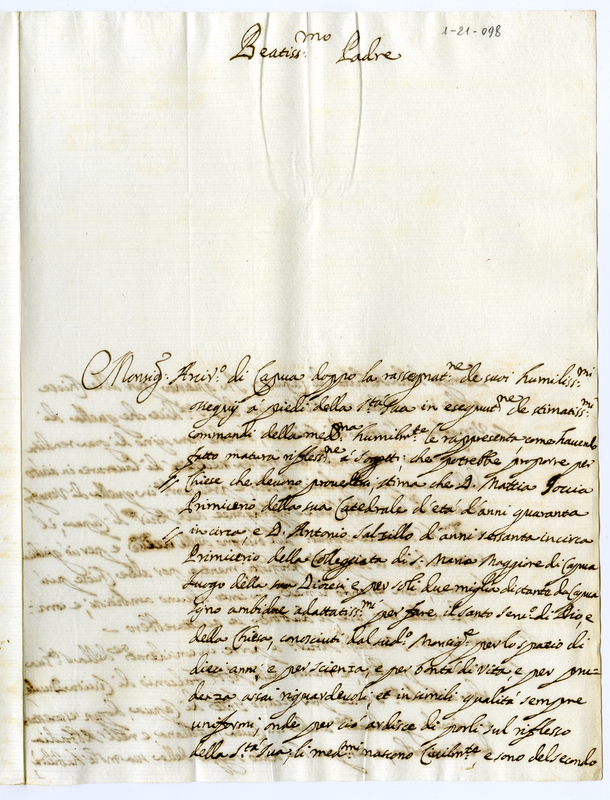 1-21-098
Beatiss:mo Padre
Monsig:r Arciv:o di Capua doppo la rassegnat:ne de suoi humiliss:mi
ossequij a piedi della S:ta Sua in esecut:ne de stimatiss:mi
commandi della med:ma humilm:te le rappresenta come havendo
fatto matura rifless:ne a' Sogetti che potrebbe proporre per
Chiese che devono provedersi stima che D. Mattia
Primicerio della sua Catedrale d'età d'anni quaranta
incirca, e D. Antonio d'anni sessanta incirca
Primicerio della Collegiata di S. Maria Maggiore di Capua
luogo della sua Diocesi, e per soli due miglia distante da Capua
siano ambidue adattatiss:mi per fare il santo serv:o di Dio, e
della Chiesa, conosciuti dal sud:o Monsig:re per lo spazio di
dieci anni, e per scienza, e per bontà di vita, e per pru=
denza assai riguardevoli, et in simili qualità sempre
uniformi, onde per ciò ardisce di porli sul riflesso
della S:ta Sua, li med:mi nascono Civilm:te, e sono del secondo